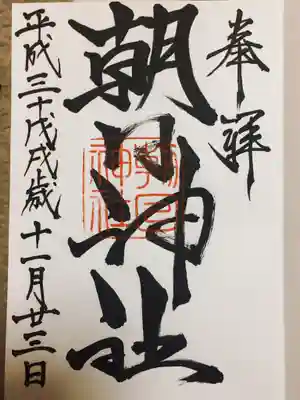 奉拝
朝日神社
朝日神社
平成三十戊戌歳十一月廿三日